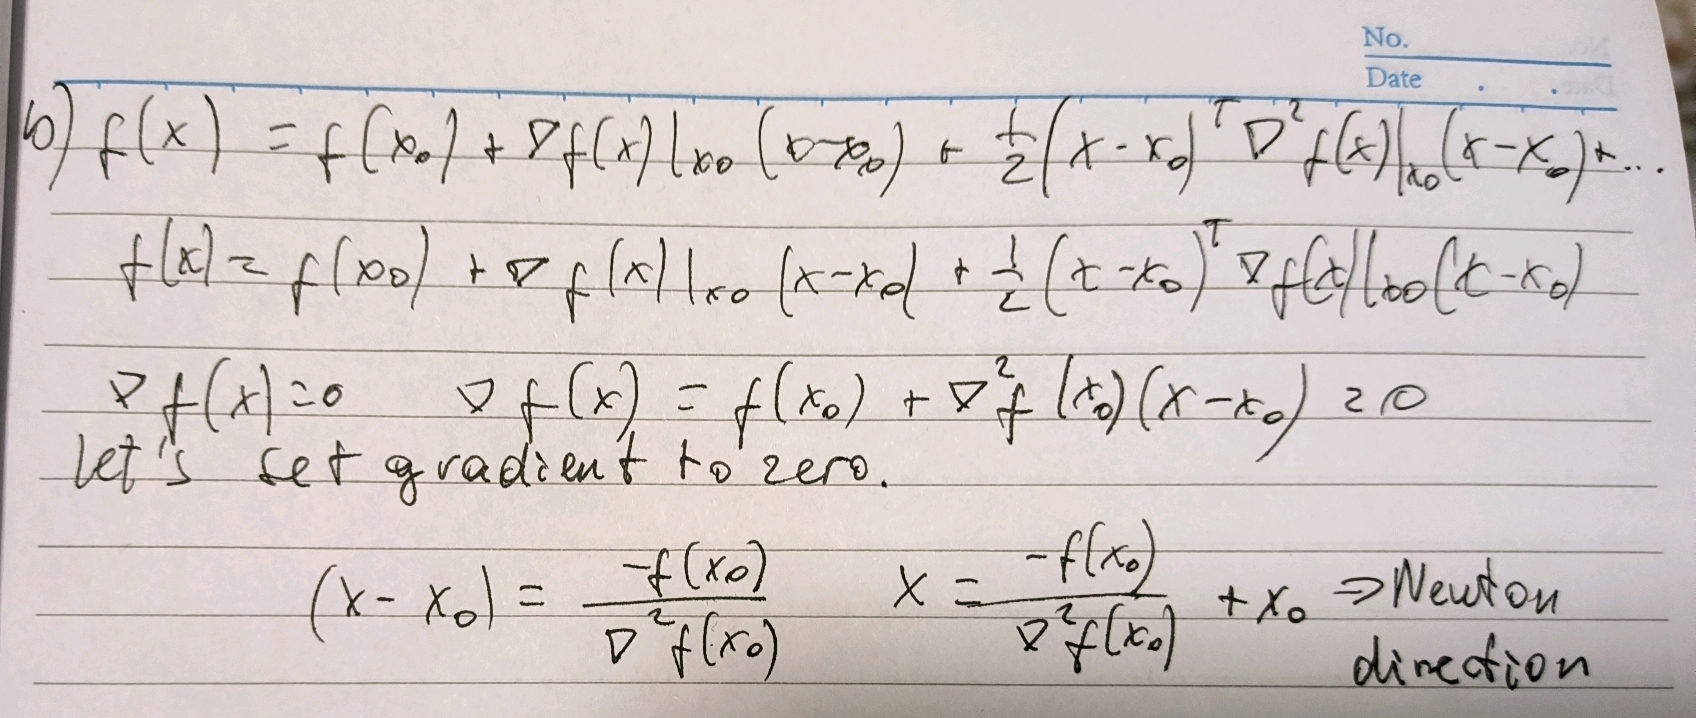 No.
Date
b) f(x) = f(x₀) + ∇f(x)|x₀ (x-x₀) + 1/2 (x-x₀)ᵀ ∇²f(x)|x₀ (x-x₀) + ...
f(x) = f(x₀) + ∇f(x)|x₀ (x-x₀) + 1/2 (x-x₀)ᵀ ∇f(x)|x₀ (x-x₀)
∇f(x)=0 ∇f(x) = f(x₀) + ∇²f(x₀)(x-x₀) = 0
Let's set gradient to zero.
(x-x₀) = -f(x₀)/∇²f(x₀) x = -f(x₀)/∇²f(x₀) + x₀ ⇒ Newton
direction